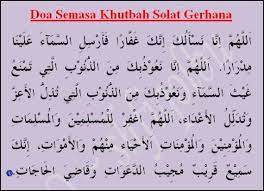 Doa Semasa Khutbah Solat Gerhana
اَللّٰهُمَّ اِنَّا نَسْأَلُكَ اِنَّكَ غَفَّارًا فَاَرْسِلِ السَّمَآءَ عَلَيْنَا
مِدْرَارًا. اَللّٰهُمَّ اِنَّا نَعُوْذُبِكَ مِنَ الذُّنُوْبِ الَّتِي تَمْنَعُ
غَيْثَ السَّمَآءِ وَنَعُوْذُبِكَ مِنَ الذُّنُوْبِ الَّتِي تُذِلُّ الْأَعِزَّ
وَتُذَلِّلُ الْأَعْدَاءِ، اَللّٰهُمَّ اغْفِرْ لِلْمُسْلِمِيْنَ وَالْمُسْلِمَاتِ
وَالْمُؤْمِنِيْنَ وَالْمُؤْمِنَاتِ الْأَحْيَاءِ مِنْهُمْ وَالْأَمْوَاتِ، اِنَّكَ
سَمِيْعٌ قَرِيْبٌ مُجِيْبُ الدَّعْوَاتِ وَقَاضِيَ الْحَاجَاتِ.